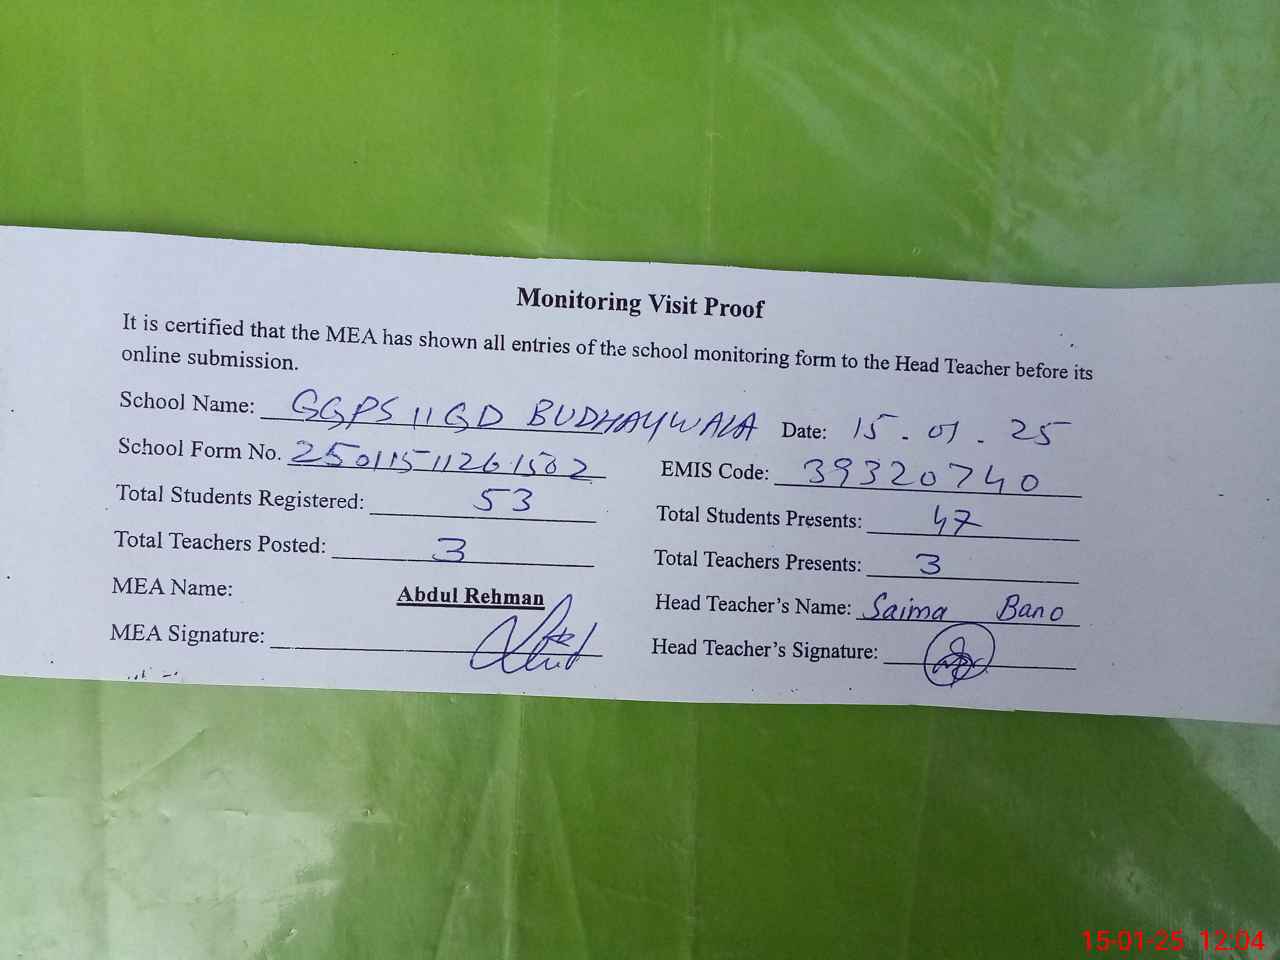 Monitoring Visit Proof
It is certified that the MEA has shown all entries of the school monitoring form to the Head Teacher before its
online submission.
School Name: GGPS 11GD BUDHAYWALA Date: 15.01.25
School Form No. 25011511261502 EMIS Code: 39320740
Total Students Registered: 53 Total Students Presents: 47
Total Teachers Posted: 3 Total Teachers Presents: 3
MEA Name: Abdul Rehman Head Teacher's Name: Saima Bano
MEA Signature: Head Teacher's Signature:
15-01-25 12:04